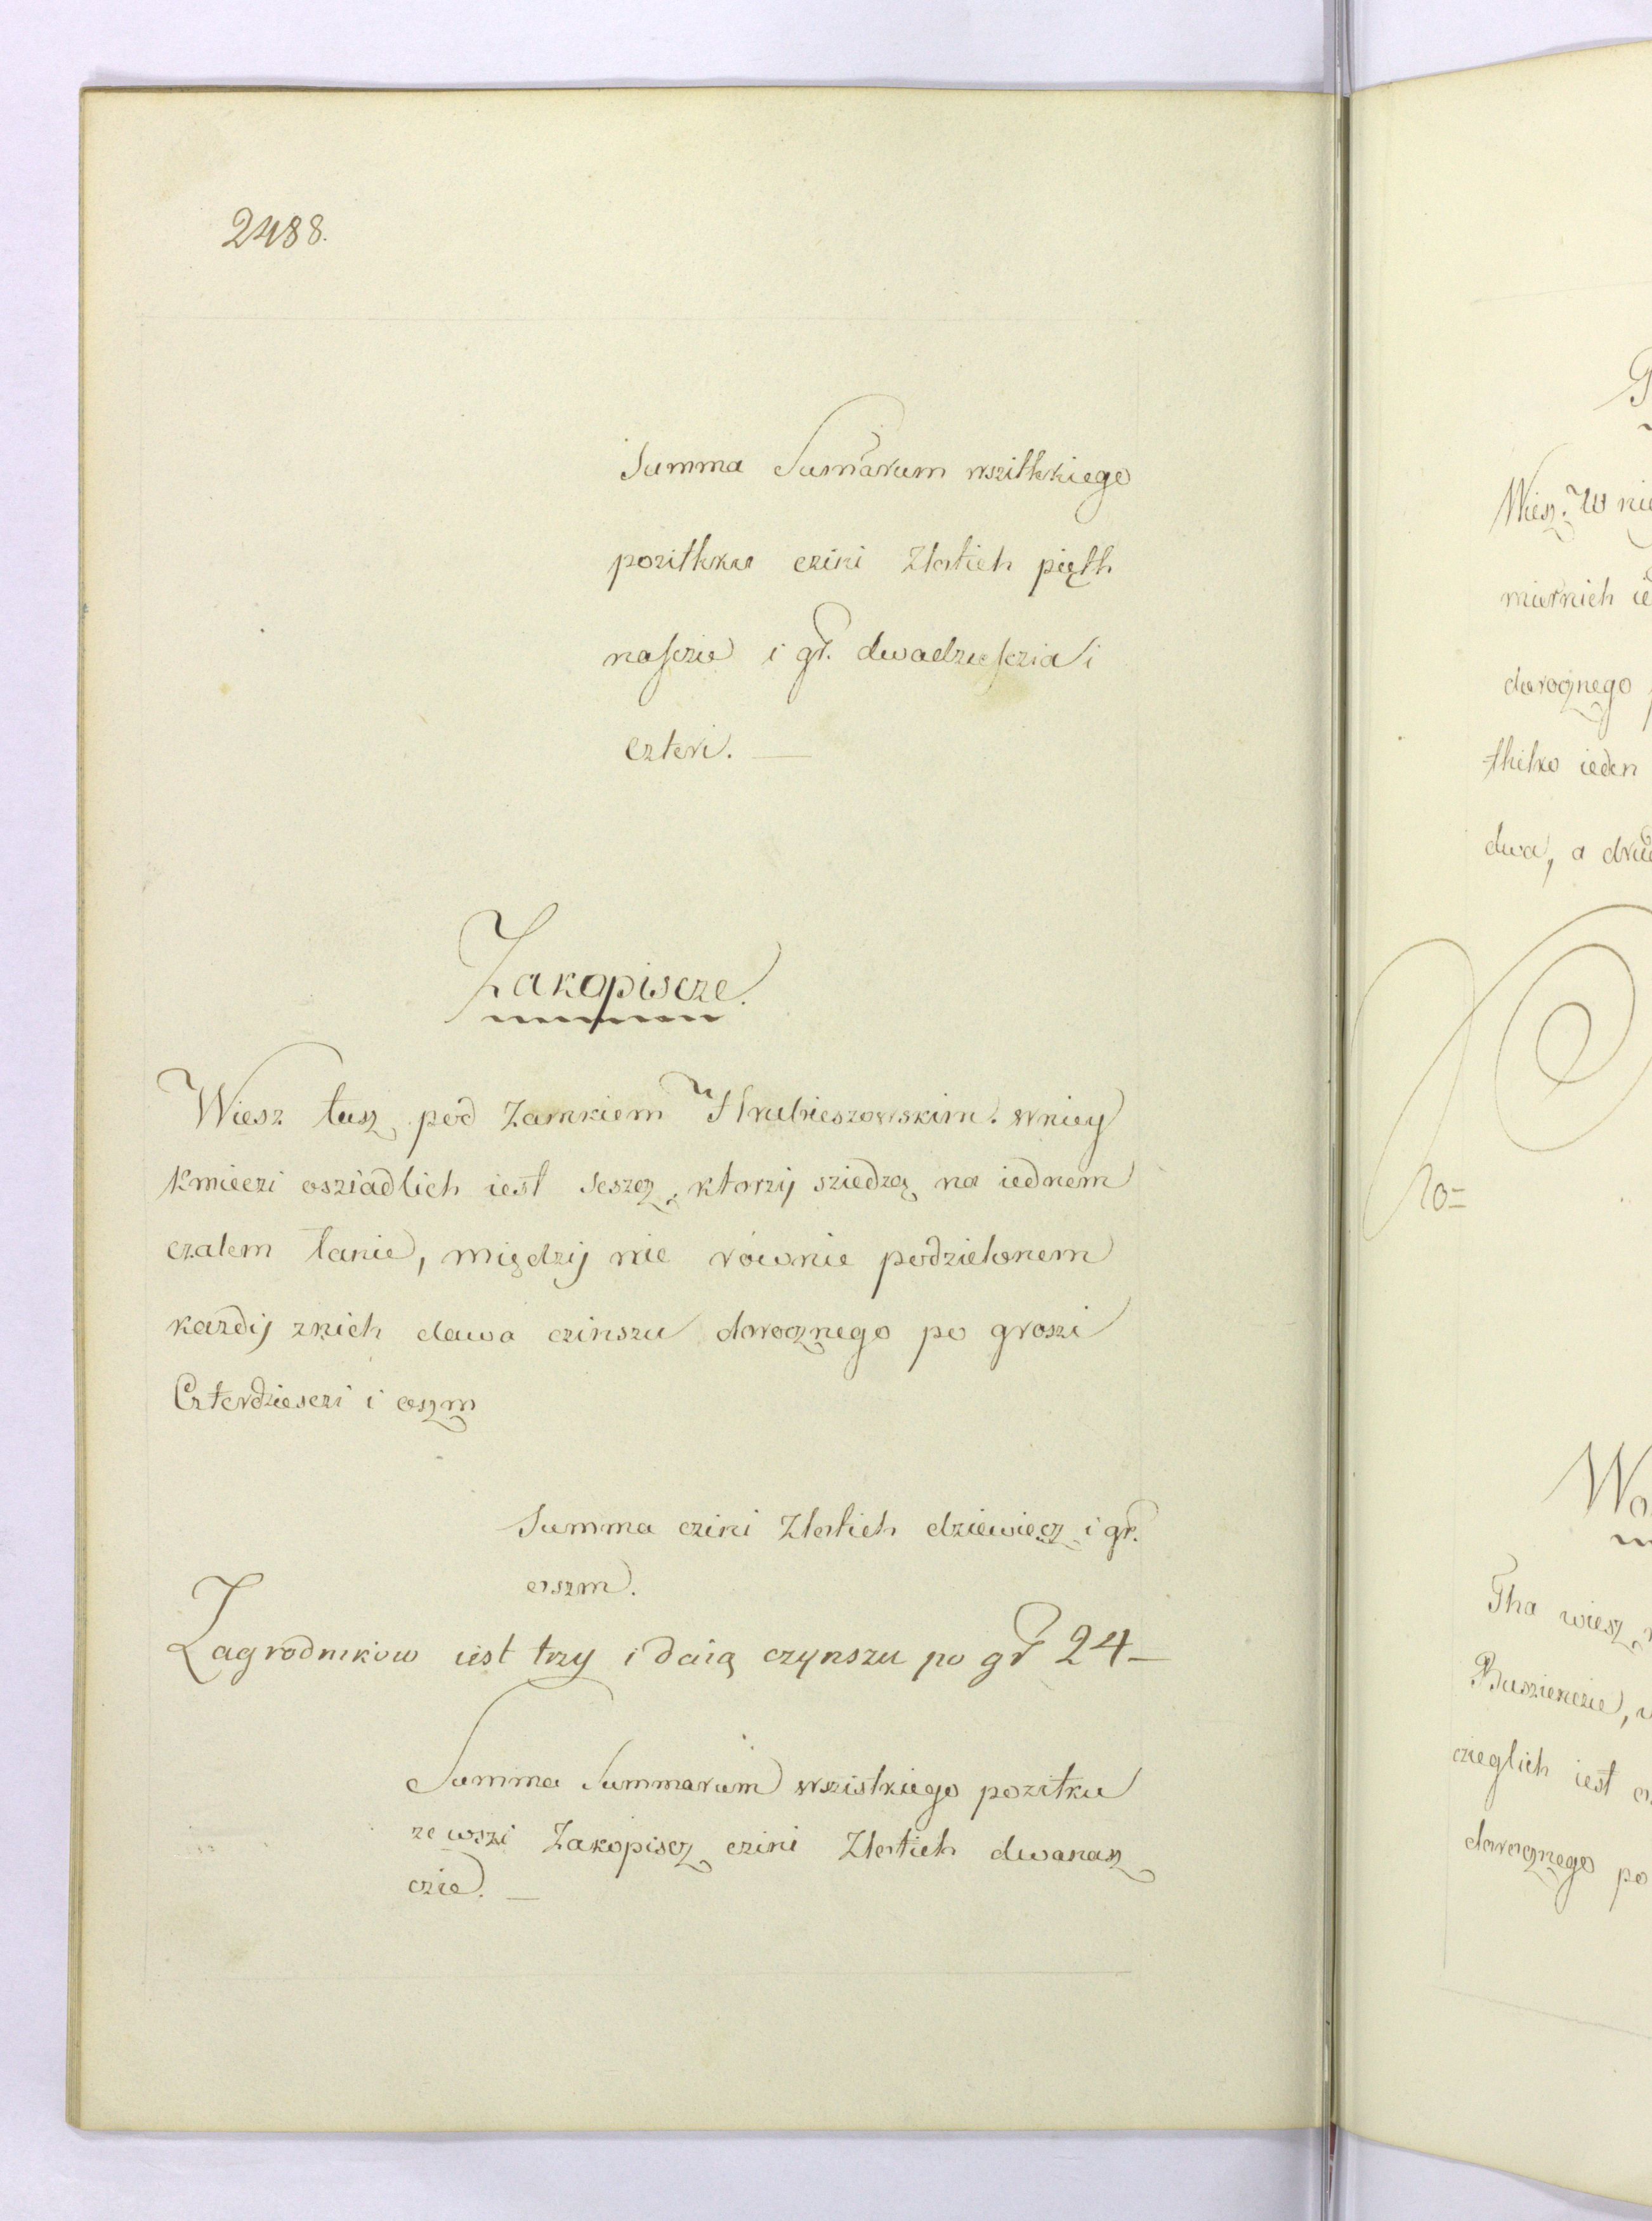 2488.
Summa Sum̃arum wszithkiego
pozithku czini Złotich pięth
nascie i gr. dwadziesczia i
czteri. —
Zakopiscze.
Wiesz tusz pod Zamkiem Hrubieszowskim. w niey
Kmieczi osziadlich iest szescz, ktorzij sziedzą na iednem
czalem łanie, między nie równie podzielonem
kazdij znich dawa czinszu dorocznego po groszi
Czterdziesczi i oszm
Summa czini Złotich dziewięcz i gr.
oszm.
Zagrodnikow iest trzy i daią czynszu po gr 24—
Summa Summarum wszistkiego pozitku
ze wszi Zakopiscz czini Złotich dwanasz
czie. —
Wiesz. W
miernich
dorocznego
thilko ieden
dwa, a
Tha wiesz
Buszieniczie,
czieglich iest
dorocznego po